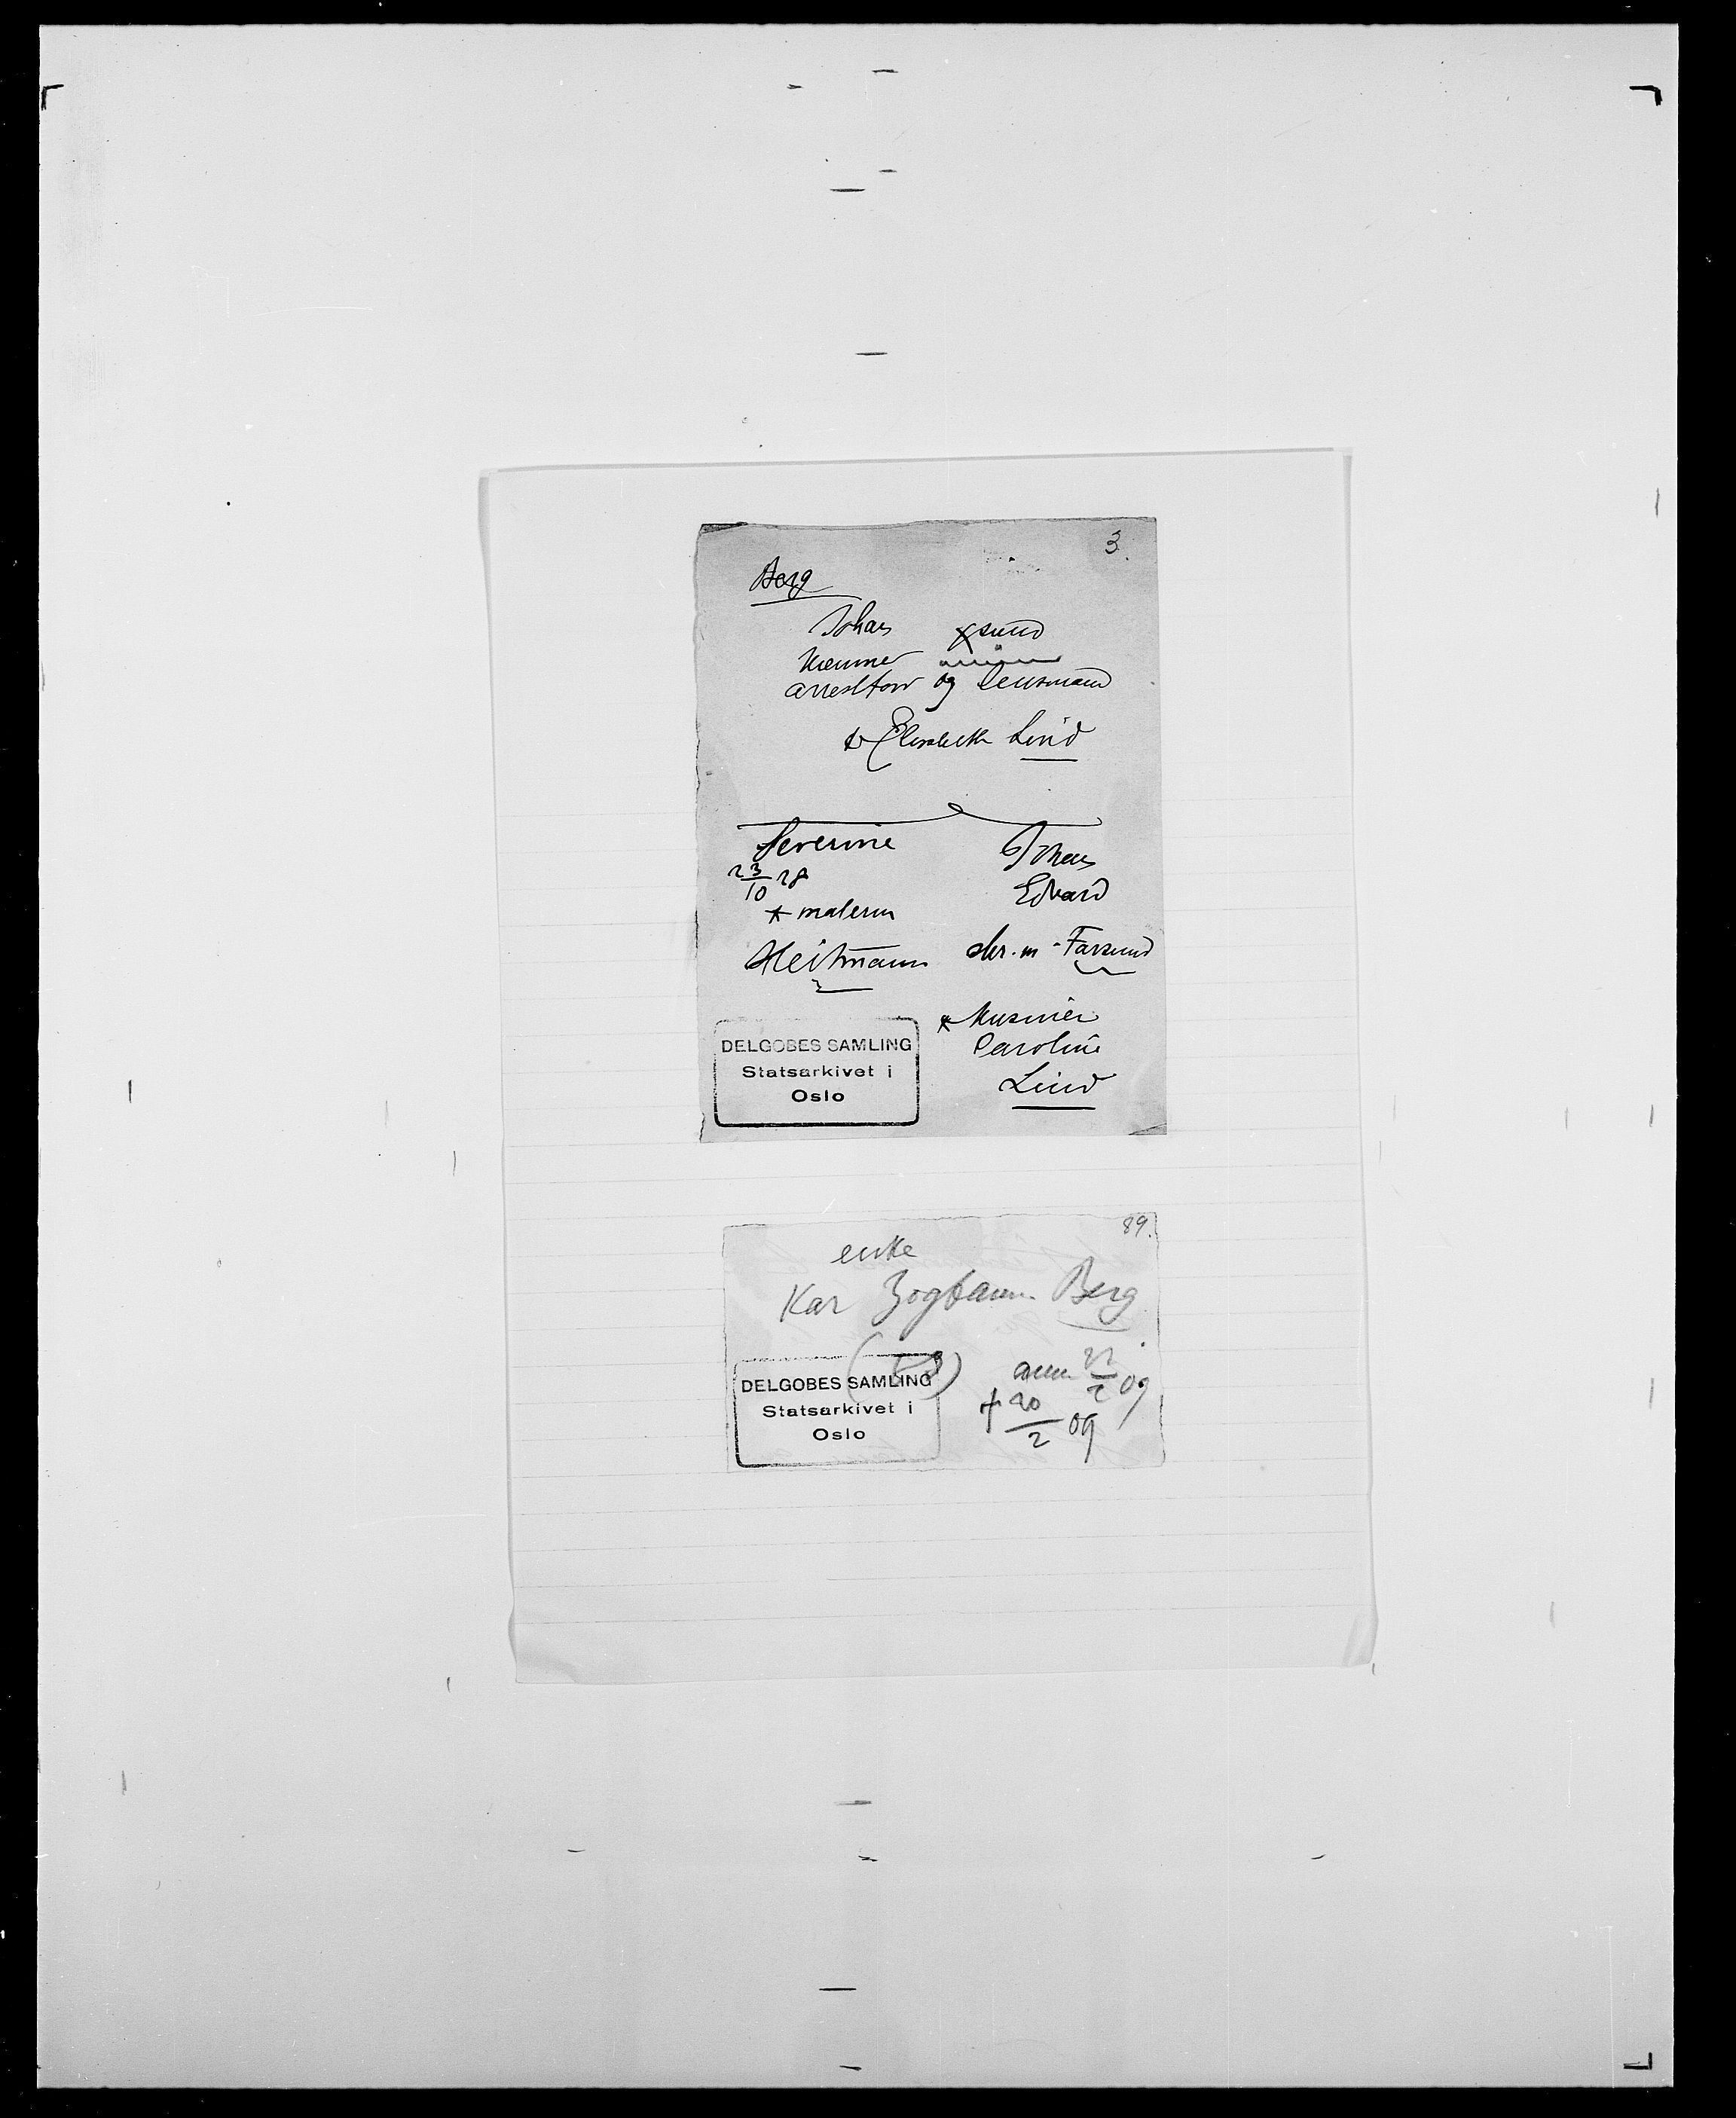 3.
Berg
Johan xsund
Kæmner
arrestforv og lensmand
Elisabeth Lind
Severine
23/10 28
* maleren
Heitmann
Johan
Edvard
skr. m - Farsund
Caroline
Lind
DELGOBES SAMLING
Statsarkivet i
Oslo
89.
enke
Kar Zogbaum Berg
(58)
ann 22/2 09
† 20/2 09
DELGOBES SAMLING
Statsarkivet i
Oslo